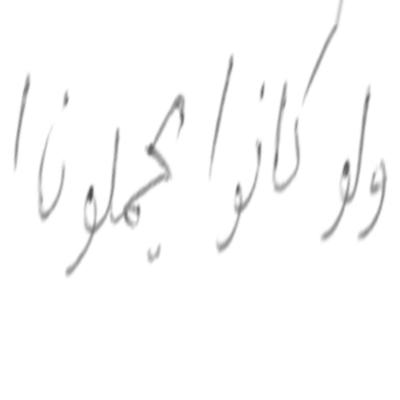 ولو كانوا يحملوننا